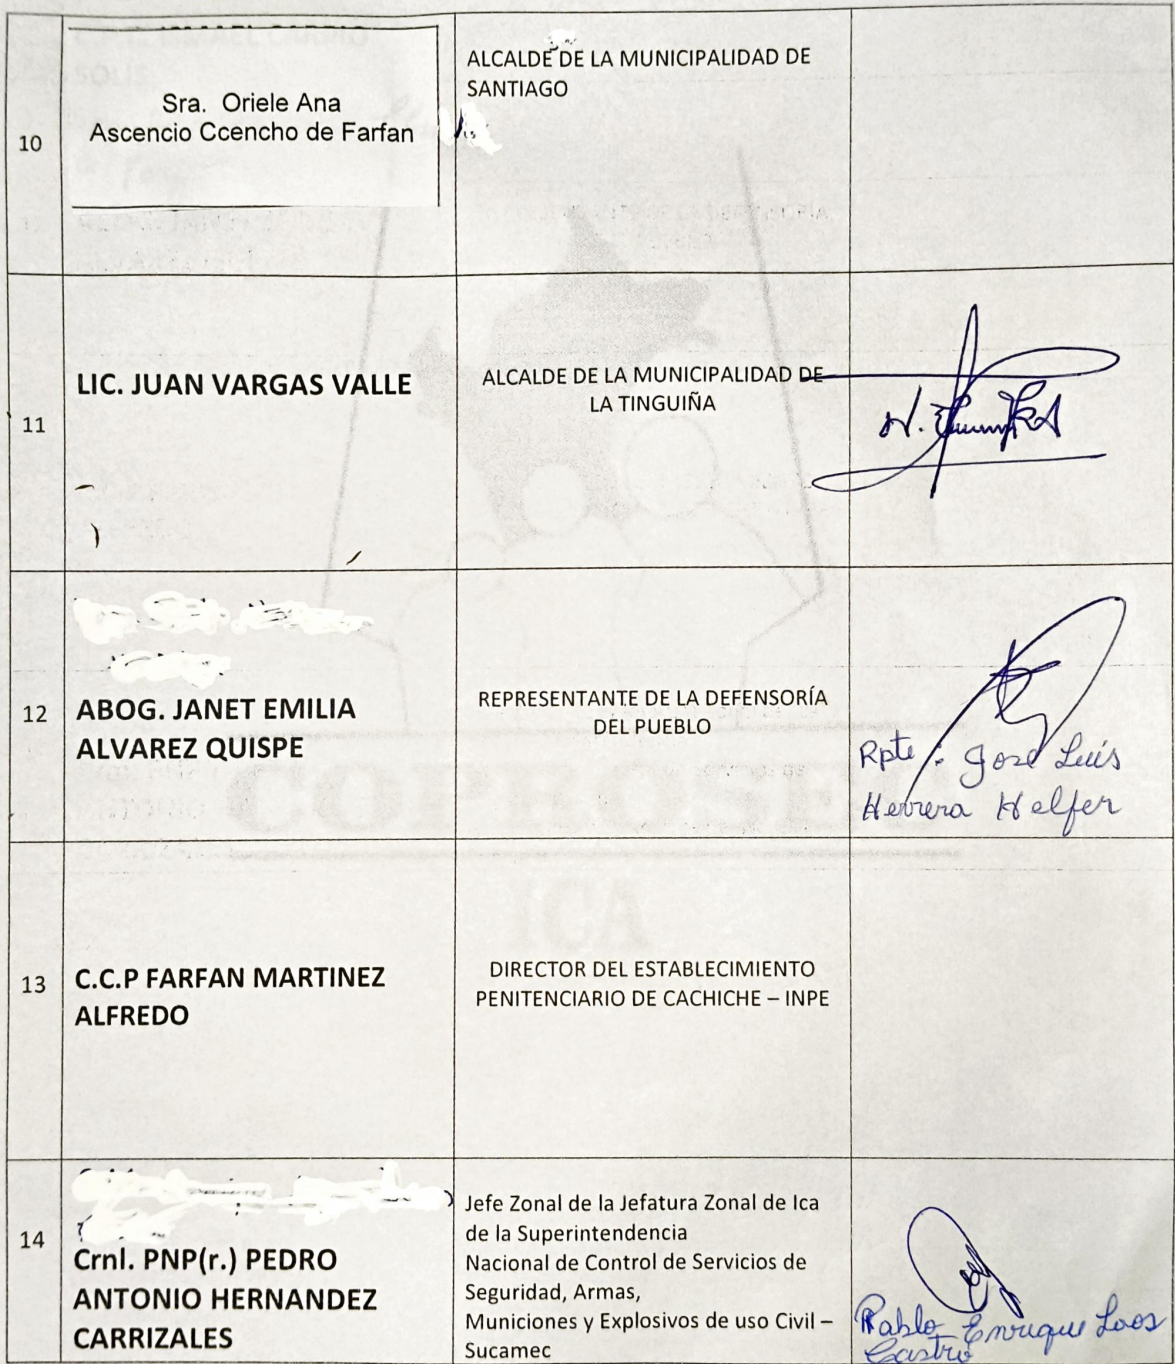 10
Sra. Oriele Ana
Ascencio Ccencho de Farfan
ALCALDE DE LA MUNICIPALIDAD DE
SANTIAGO
11
LIC. JUAN VARGAS VALLE
ALCALDE DE LA MUNICIPALIDAD DE
LA TINGUIÑA
12
ABOG. JANET EMILIA
ALVAREZ QUISPE
REPRESENTANTE DE LA DEFENSORÍA
DEL PUEBLO
Rpte: José Luis
Herrera Helfer
13
C.C.P FARFAN MARTINEZ
ALFREDO
DIRECTOR DEL ESTABLECIMIENTO
PENITENCIARIO DE CACHICHE – INPE
14
Crnl. PNP(r.) PEDRO
ANTONIO HERNANDEZ
CARRIZALES
Jefe Zonal de la Jefatura Zonal de Ica
de la Superintendencia
Nacional de Control de Servicios de
Seguridad, Armas,
Municiones y Explosivos de uso Civil –
Sucamec
Pablo Enrique Laos
Castro
ICA